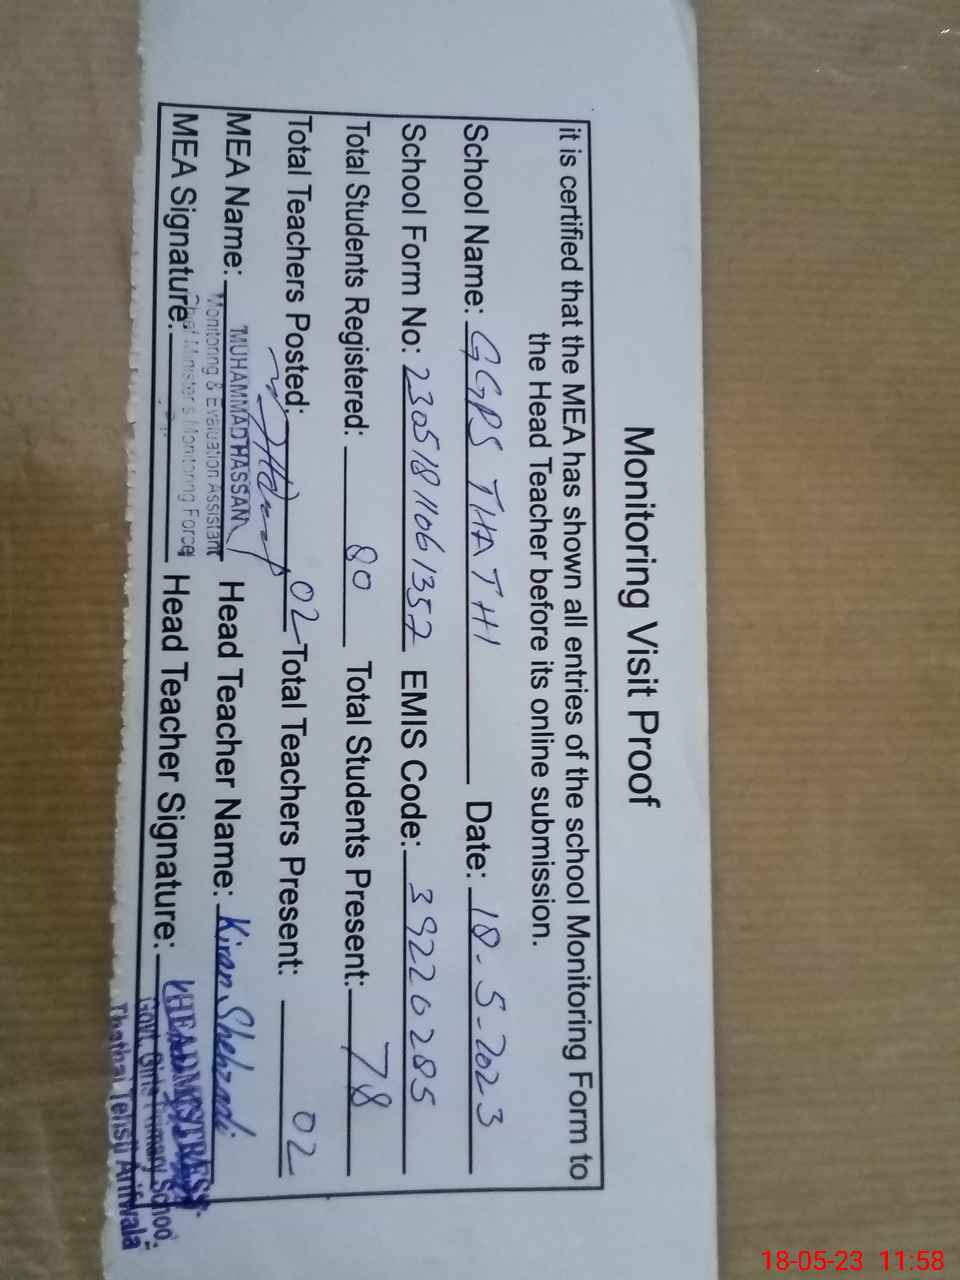 Monitoring Visit Proof
it is certified that the MEA has shown all entries of the school Monitoring Form to
the Head Teacher before its online submission.
School Name: GGPS THATHI Date: 18-5-2023
School Form No: 23051811061357 EMIS Code: 39220285
Total Students Registered: 80 Total Students Present: 78
Total Teachers Posted: 02 Total Teachers Present: 02
MEA Name: MUHAMMAD HASSAN Head Teacher Name: Kiran Shehzadi
Monitoring & Evaluation Assistant
Chief Minister's Monitoring Force
MEA Signature: Head Teacher Signature:
HEADMISTRESS
Govt. Girls Primary School
Thathai Tehsil Arifwala
18-05-23 11:58